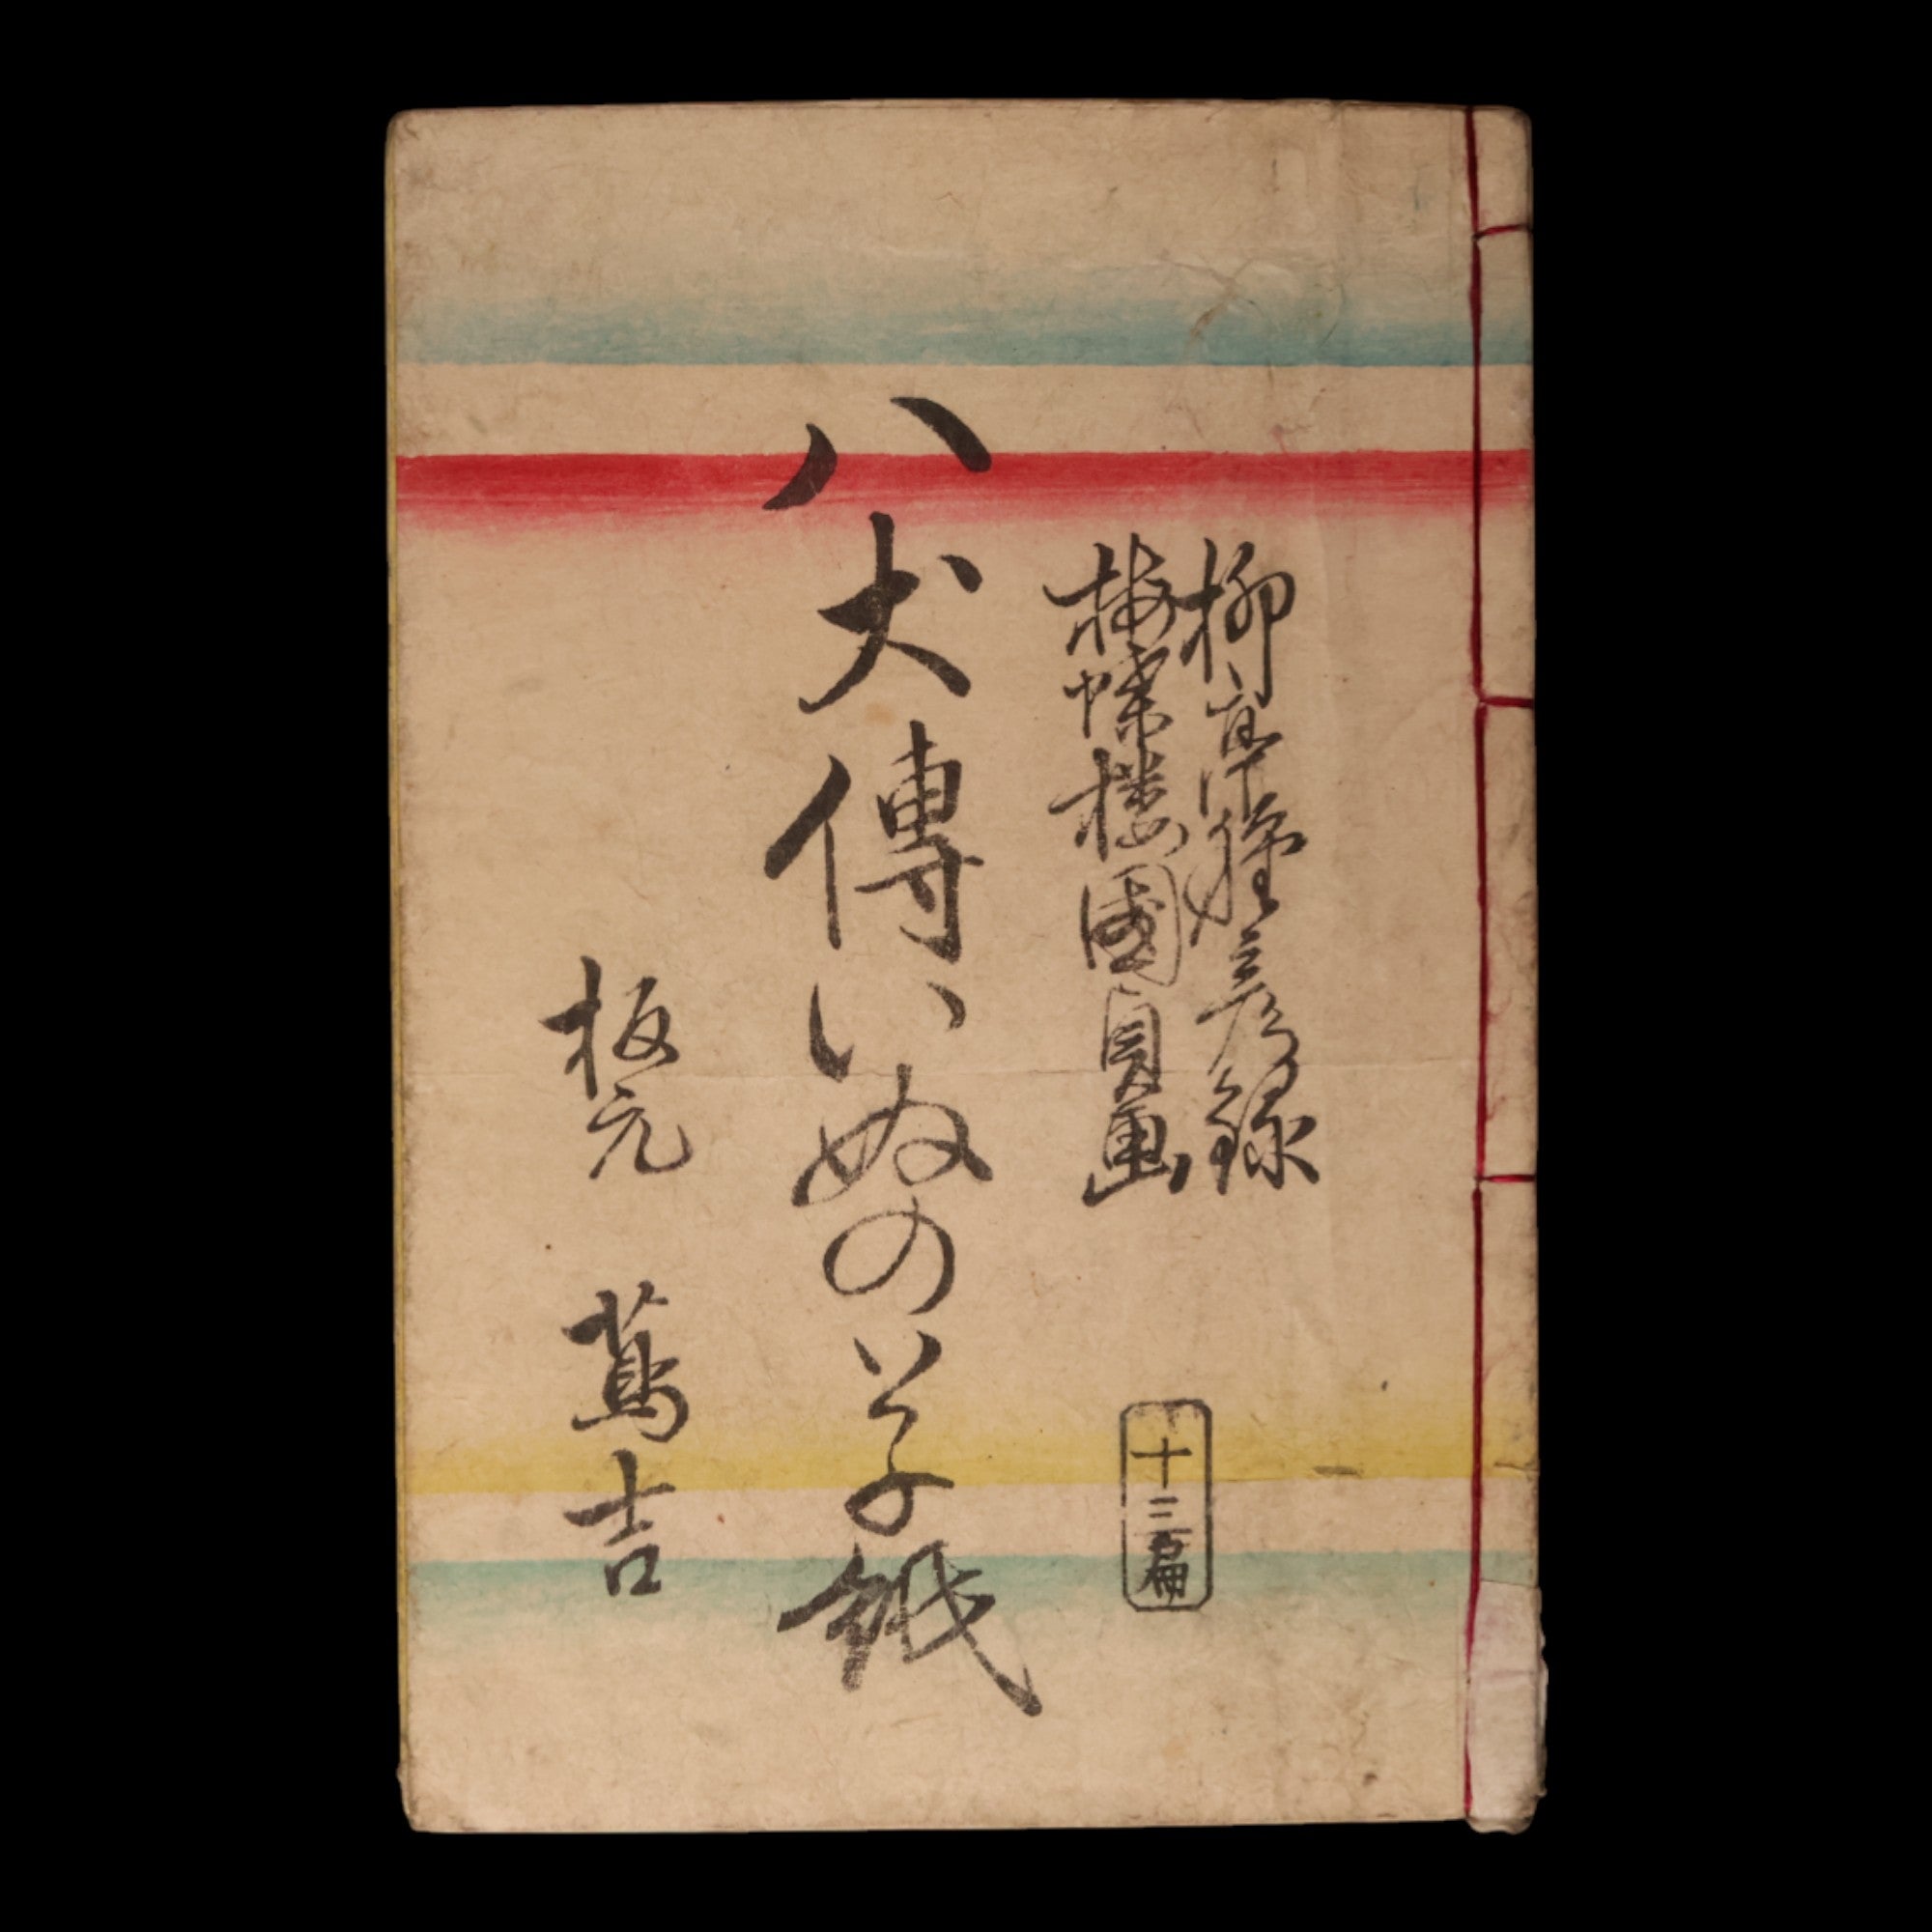 柳亭種彦録
梅蝶楼國貞画
十三編
八犬傳いぬの草子紙
板元 蔦吉